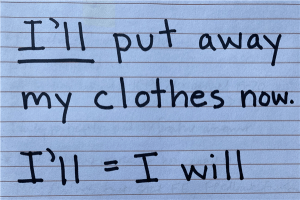 I'll put away
my clothes now.
I'll = I will